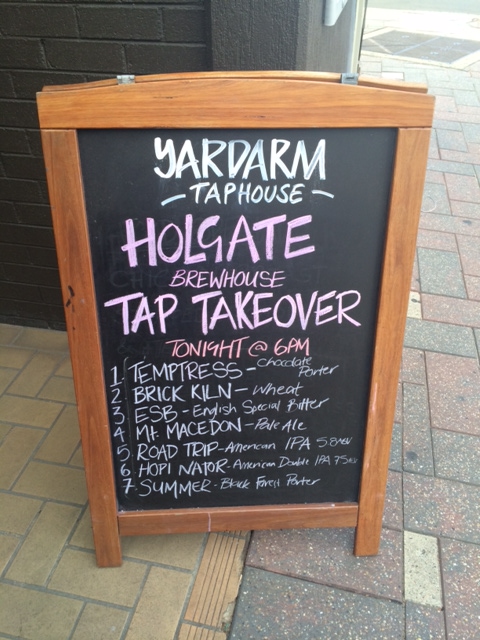 YARDARM
- TAPHOUSE -
HOLGATE
BREWHOUSE
TAP TAKEOVER
TONIGHT @ 6PM
1 TEMPTRESS - Chocolate Porter
2 BRICK KILN - Wheat
3 ESB - English Special Bitter
4 Mt. MACEDON - Pale Ale
5 ROAD TRIP - American IPA 5.8ABV
6 HOPINATOR - American Double IPA 7.5
7. SUMMER - Black Forest Porter